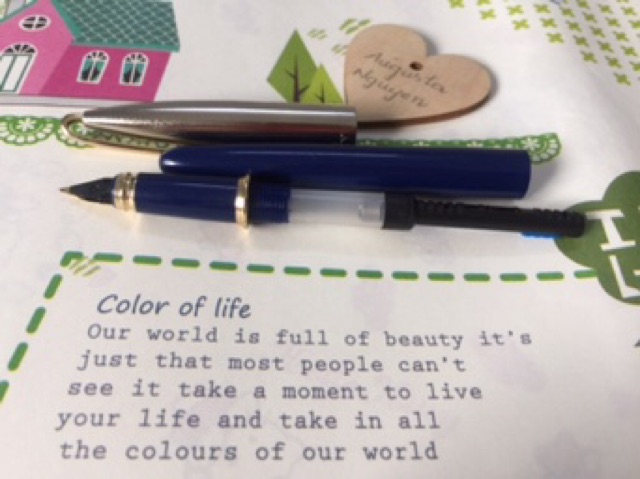 Augusta
Nguyen
Color of life
Our world is full of beauty it's
just that most people can't
see it take a moment to live
your life and take in all
the colours of our world